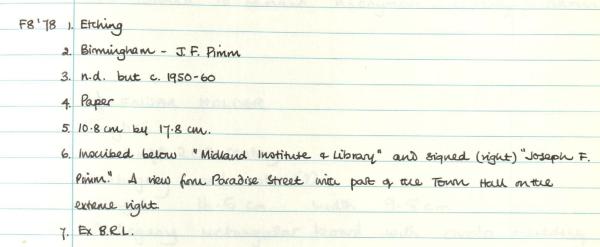 F8'78 1. Etching
2. Birmingham - J.F. Pimm
3. n.d. but c. 1950-60
4. Paper
5. 10.8 cm by 17.8 cm.
6. Inscribed below "Midland Institute & Library" and signed (right) "Joseph F.
Pimm." A view from Paradise Street with part of the Town Hall on the
extreme right.
7. Ex B.R.L.